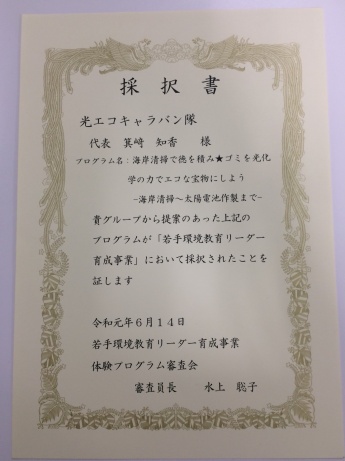 採択書
光エコキャラバン隊
代表 箕﨑 知香 様
プログラム名：海岸清掃で徳を積み★ゴミを光化
学の力でエコな宝物にしよう
-海岸清掃～太陽電池作製まで-
貴グループから提案のあった上記の
プログラムが「若手環境教育リーダー
育成事業」において採択されたことを
証します
令和元年６月１４日
若手環境教育リーダー育成事業
体験プログラム審査会
審査員長 水上 聡子